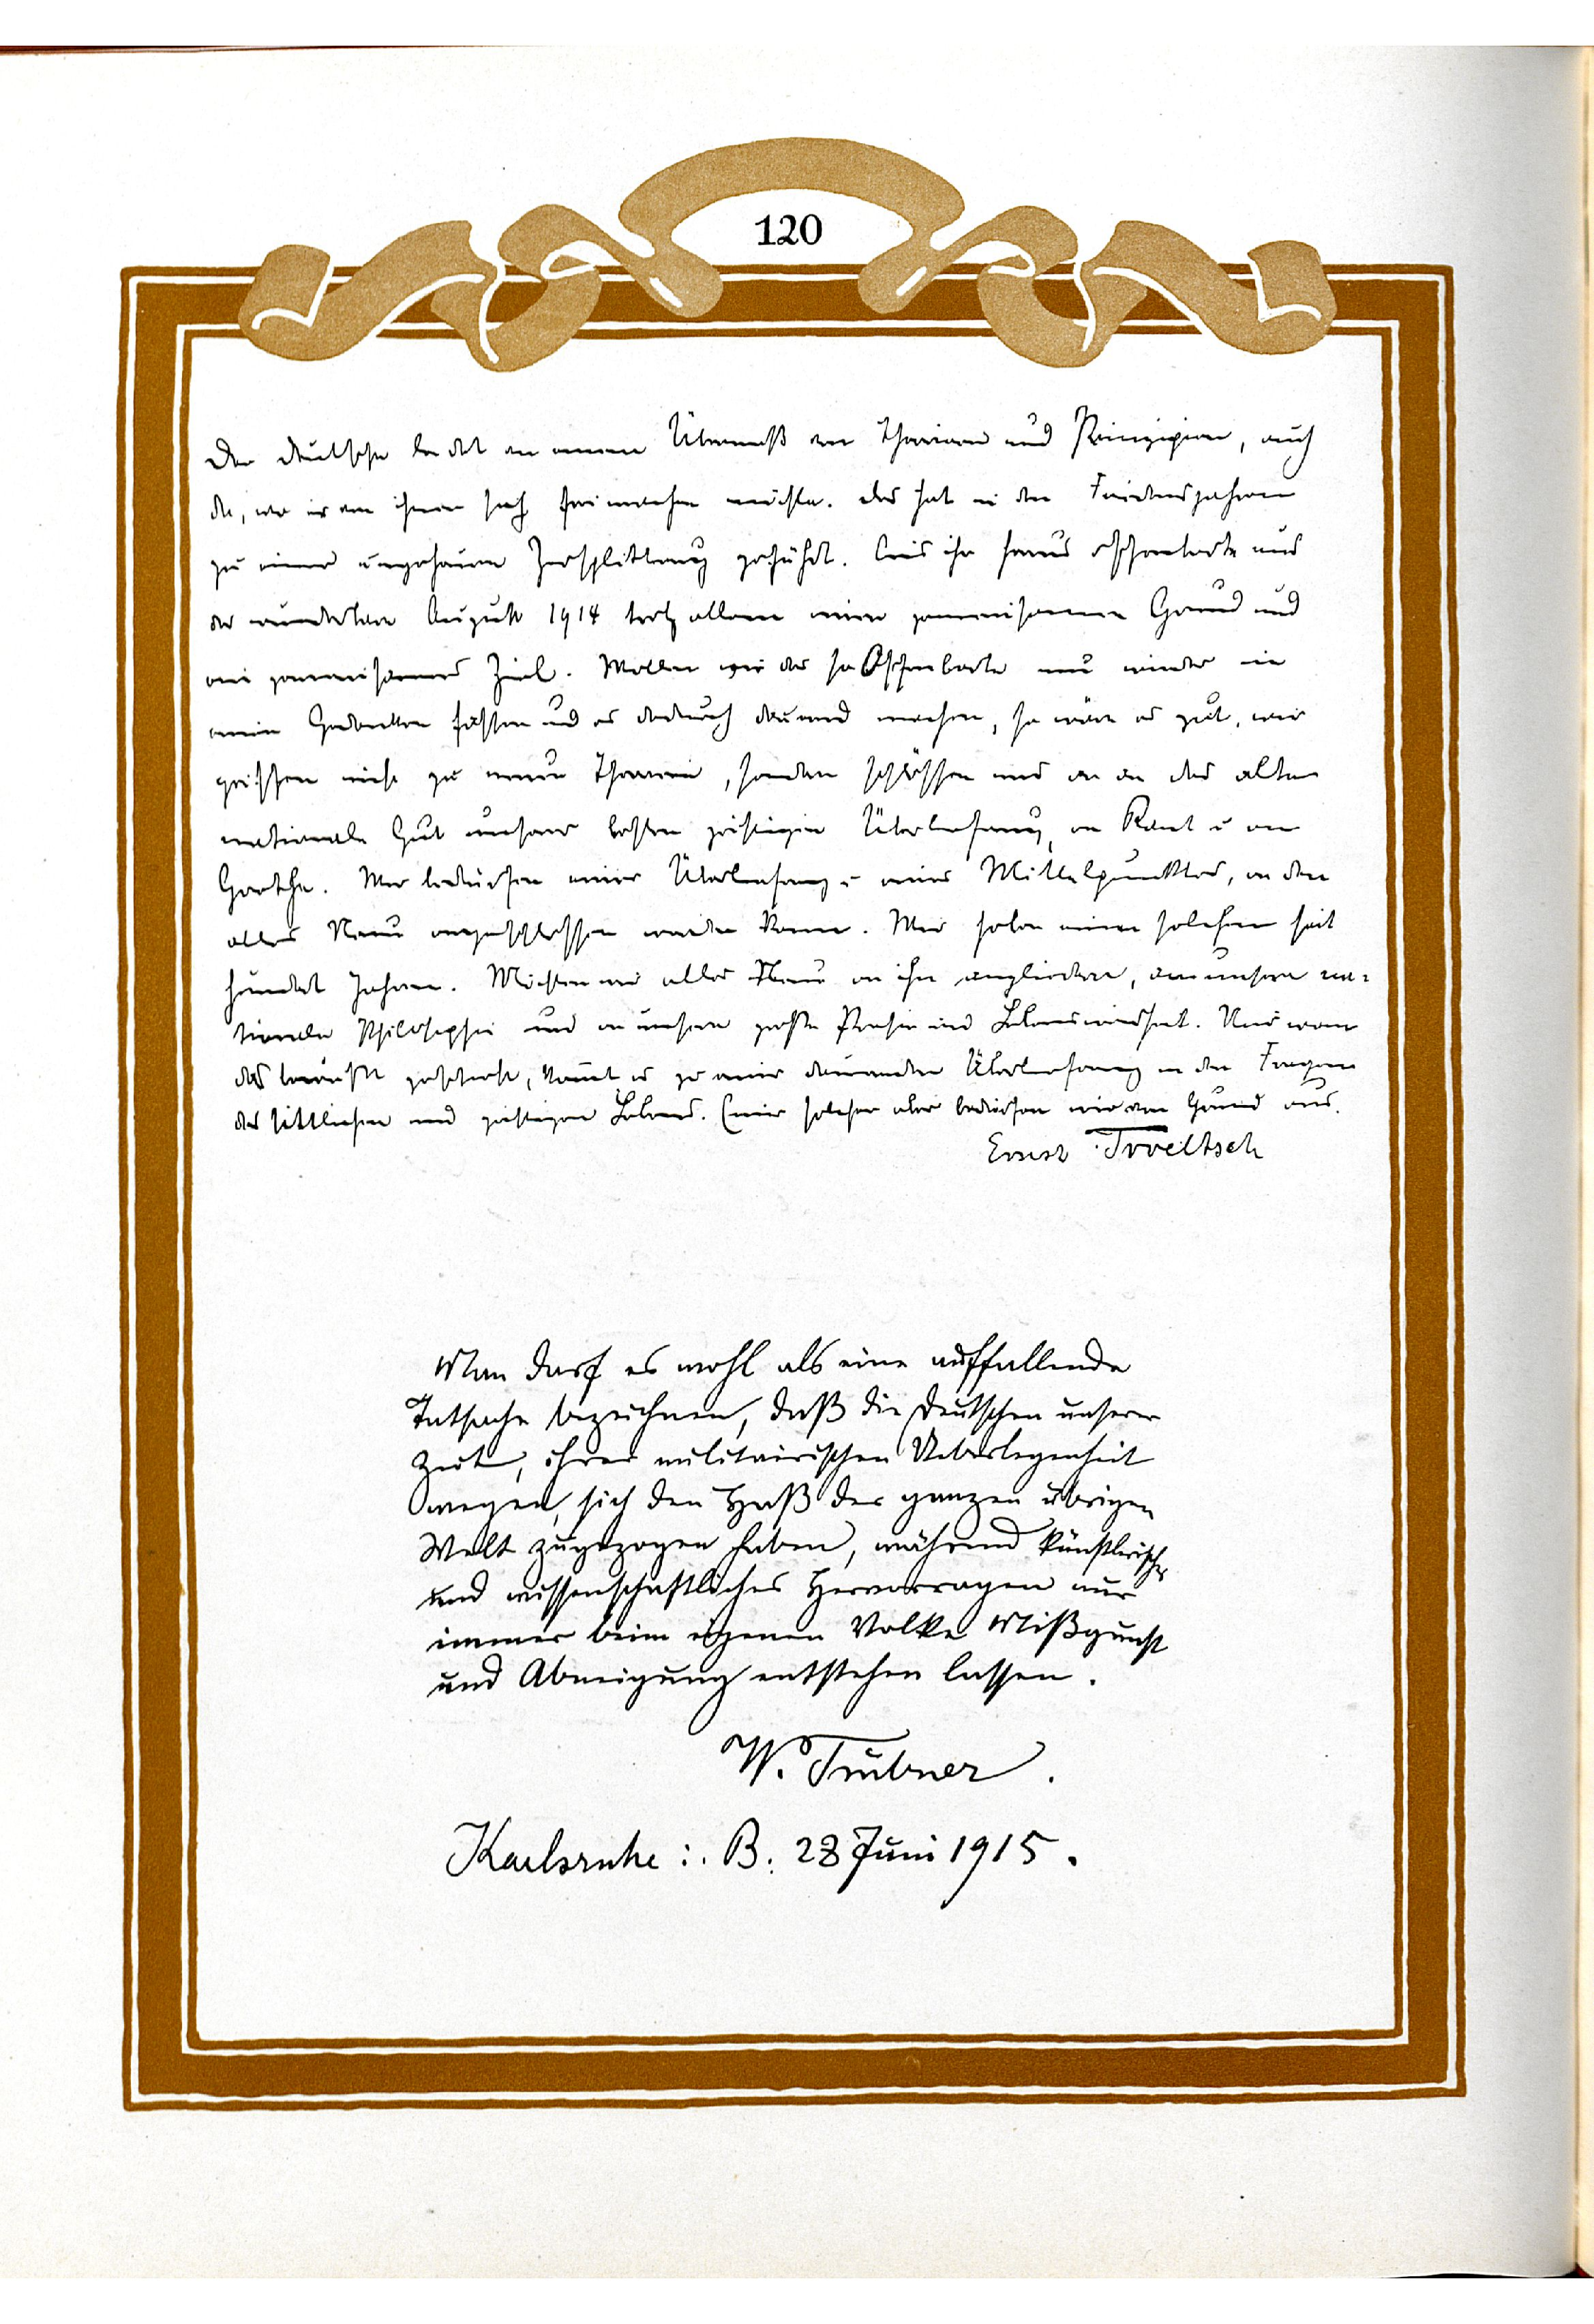 120
Der Deutsche leidet an einem Übermaß von Theorien und Prinzipien, auch
da, wo er von ihnen sich frei machen möchte. Das hat in den Friedensjahren
zu einer ungeheuren Zersplitterung geführt. Aus ihr heraus offenbarte uns
der wunderbare August 1914 trotz allem einen gemeinsamen Grund und
ein gemeinsames Ziel. Wollen wir das so Offenbarte nun wieder in
einen Gedanken fassen und es dadurch dauernd machen, so wäre es gut, wir
griffen nicht zu neuen Theorien, sondern schlössen uns an an das alte
nationale Gut unserer besten geistigen Überlieferung, an Kant u an
Goethe. Wir bedürfen einer Überlieferung u eines Mittelpunktes, an den
alles Neue angeschlossen werden kann. Wir haben einen solchen seit
hundert Jahren. Möchten wir alles Neue an ihn angliedern, an unsere na-
tionale Philosophie und an unsere große Poesie und Lebensweisheit. Nur wenn
das bewußt geschieht, kommt es zu einer dauernden Überlieferung in den Fragen
des sittlichen und geistigen Lebens. Einer solchen aber bedürfen wir von Grund aus.
Ernst Troeltsch
Man darf es wohl als eine auffallende
Tatsache bezeichnen, daß die Deutschen unserer
Zeit, ihrer militairischen Ueberlegenheit
wegen, sich den Haß der ganzen übrigen
Welt zugezogen haben, während künstlerisches
und wissenschaftliches Hervorragen nur
immer beim eigenen Volke Mißgunst
und Abneigung entstehen lassen.
W. Trübner.
Karlsruhe i. B. 28 Juni 1915.